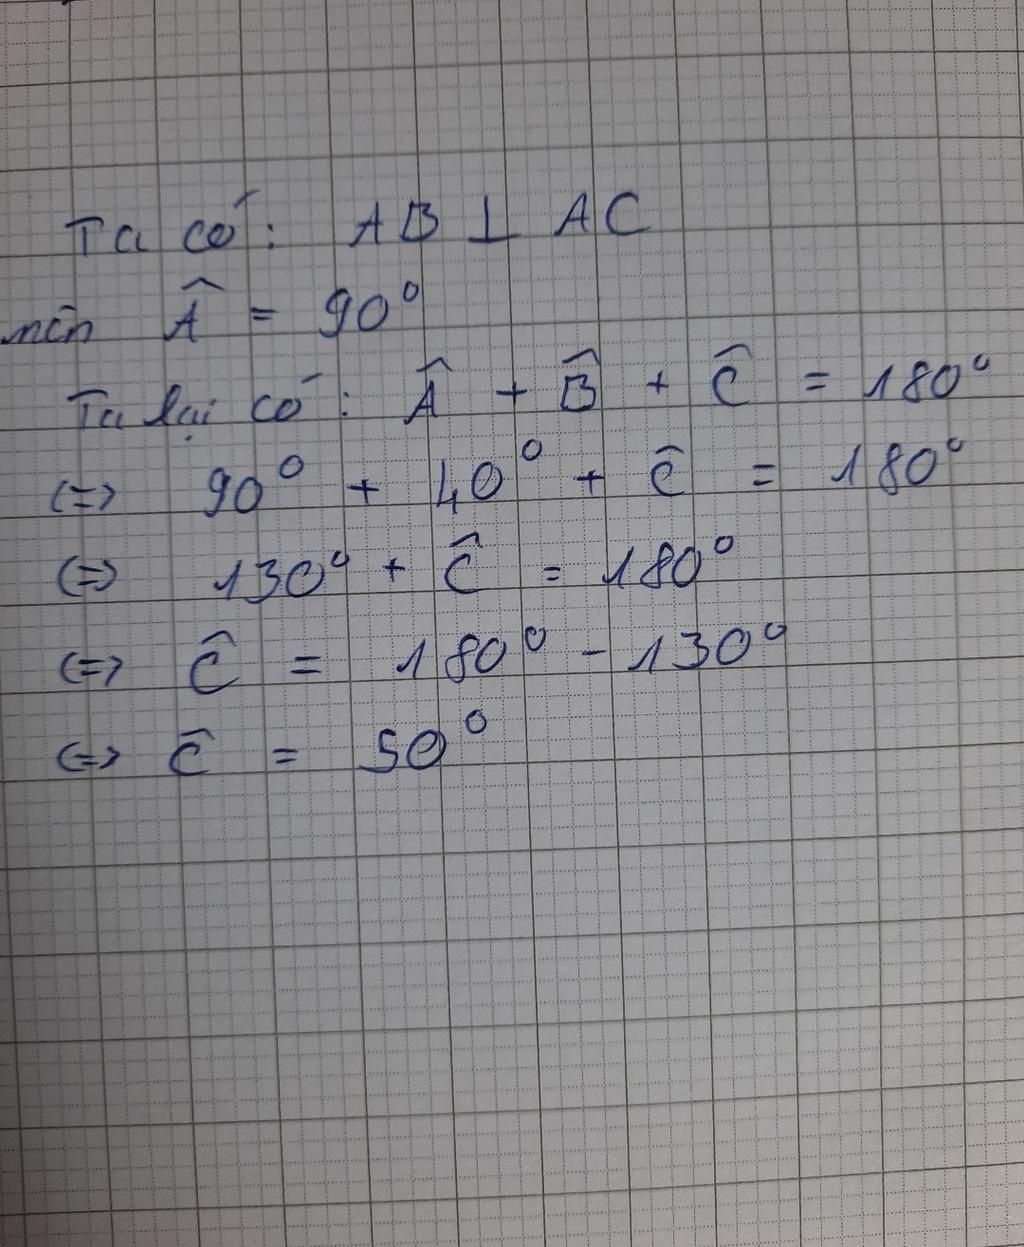 Ta có: AB ⊥ AC
nên Â = 90°
Ta lại có: Â + B̂ + Ĉ = 180°
(=) 90° + 40° + Ĉ = 180°
(=) 130° + Ĉ = 180°
(=) Ĉ = 180° - 130°
(=) Ĉ = 50°